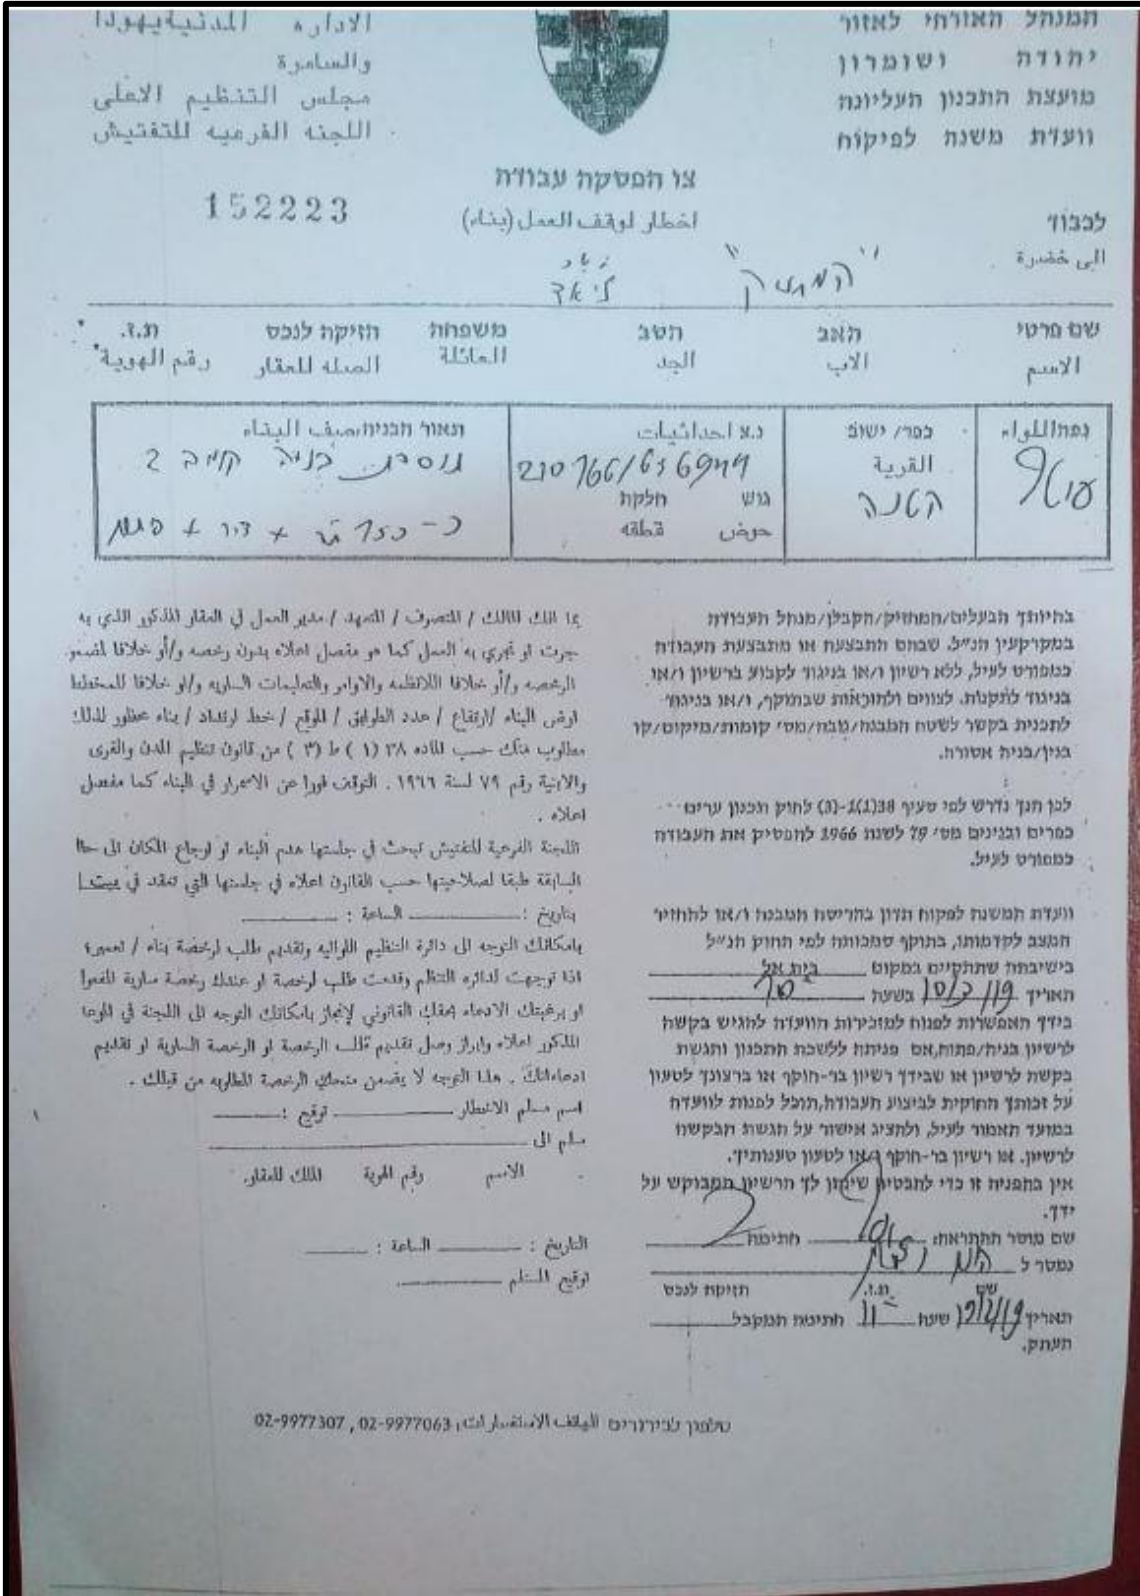 המנהל האזרחי לאזור
יהודה ושומרון
מועצת התכנון העליונה
וועדת משנה לפיקוח
الاداره المدنية يهودا
والسامرة
مجلس التنظيم الاعلى
اللجنه الفرعيه للتفتيش
צו הפסקת עבודה
اخطار لوقف العمل (بناء)
152223
לכבוד
الى حضرة
"המחזיק"
שם פרטי האב הסב משפחה חזיקה לנכס ת.ז.
الاسم الاب الجد العائلة الصله للعقار رقم الهوية
נפה اللواء
כפר/ ישוב
القرية
נ.צ احداثيات
210766/636944
גוש חלקה
حوض قطعه
תאור הבניה صيف البناء
תוספת בניה קומה 2
כ- 150
בהיותך הבעלים/המחזיק/הקבלן/מנהל העבודה
במקרקעין הנ"ל, שבהם התבצעה או מתבצעת העבודה
כמפורט לעיל, ללא רשיון ו/או בניגוד לקבוע ברשיון ו/או
בניגוד לתקנות, לצווים ולהוראות שבתוקף, ו/או בניגוד
לתכנית בקשר לשטח המבנה/גובה/מס' קומות/מיקום/קו
בנין/בניה אסורה.
לכן הנך נדרש לפי סעיף 38(1)-(3) לחוק תכנון ערים
כפרים ובנינים מס' 79 לשנת 1966 להפסיק את העבודה
כמפורט לעיל.
וועדת המשנה לפקוח תדון בהריסת המבנה ו/או להחזיר
המצב לקדמותו, בתוקף סמכותה לפי החוק הנ"ל
בישיבתה שתתקיים במקום בית אל
תאריך בשעה
בידך האפשרות לפנות למזכירות הוועדה להגיש בקשה
לרשיון בניה/פתוח, אם פנית ללשכת התכנון והגשת
בקשה לרשיון או שבידך רשיון בר-תוקף או ברצונך לטעון
על זכותך החוקית לביצוע העבודה, תוכל לפנות לוועדה
במועד האמור לעיל, ולהציג אישור על הגשת הבקשה
לרשיון, או רשיון בר-תוקף ו/או לטעון טענותיך.
אין בהפניה זו כדי להבטיח שינתן לך הרשיון המבוקש על
ידך.
שם מוסר ההתראה: חתימה
נמסר ל
שם ת.ז. חזיקה לנכס
תאריך שעה 11 חתימת המקבל
העתק.
بما انك المالك / المتصرف / المتعهد / مدير العمل في العقار المذكور الذي به
جرت او تجري به العمل كما هو مفصل اعلاه بدون رخصه و/أو خلافا لمضمون
الرخصه و/أو خلافا للانظمه والاوامر والتعليمات الساريه و/او خلافا للمخطط
ارض البناء /ارتفاع / عدد الطوابق / الموقع / خط ارتداد / بناء محظور لذلك
مطلوب منك حسب الماده ٣٨ (١) ط (٣) من قانون تنظيم المدن والقرى
والابنية رقم ٧٩ لسنة ١٩٦٦ . التوقف فورا عن الاستمرار في البناء كما مفصل
اعلاه .
اللجنة الفرعية للتفتيش تبحث في جلستها هدم البناء او ارجاع المكان الى حاله
السابقة طبقا لصلاحيتها حسب القانون اعلاه في جلستها التي تعقد في
بتاريخ : الساعة :
بامكانك التوجه الى دائرة التنظيم اللوائيه وتقديم طلب لرخصة بناء / تعمير
اذا توجهت لدائره التنظيم وقدمت طلب لرخصة او عندك رخصة سارية المفعول
او برغبتك الادعاء بحقك القانوني لإنجاز بامكانك التوجه الى اللجنة في الموعد
المذكور اعلاه وابراز وصل تقديم طلب الرخصة او الرخصة السارية او تقديم
ادعاءاتك . هذا التوجه لا يضمن منحك الرخصة المطلوبه من قبلك .
اسم مسلم الاخطار توقيع :
سلم الى
الاسم رقم الهوية الملك للعقار.
التاريخ : الساعة :
توقيع المستلم
טלפון לבירורים للهاتف الاستفسارات: 02-9977063 , 02-9977307